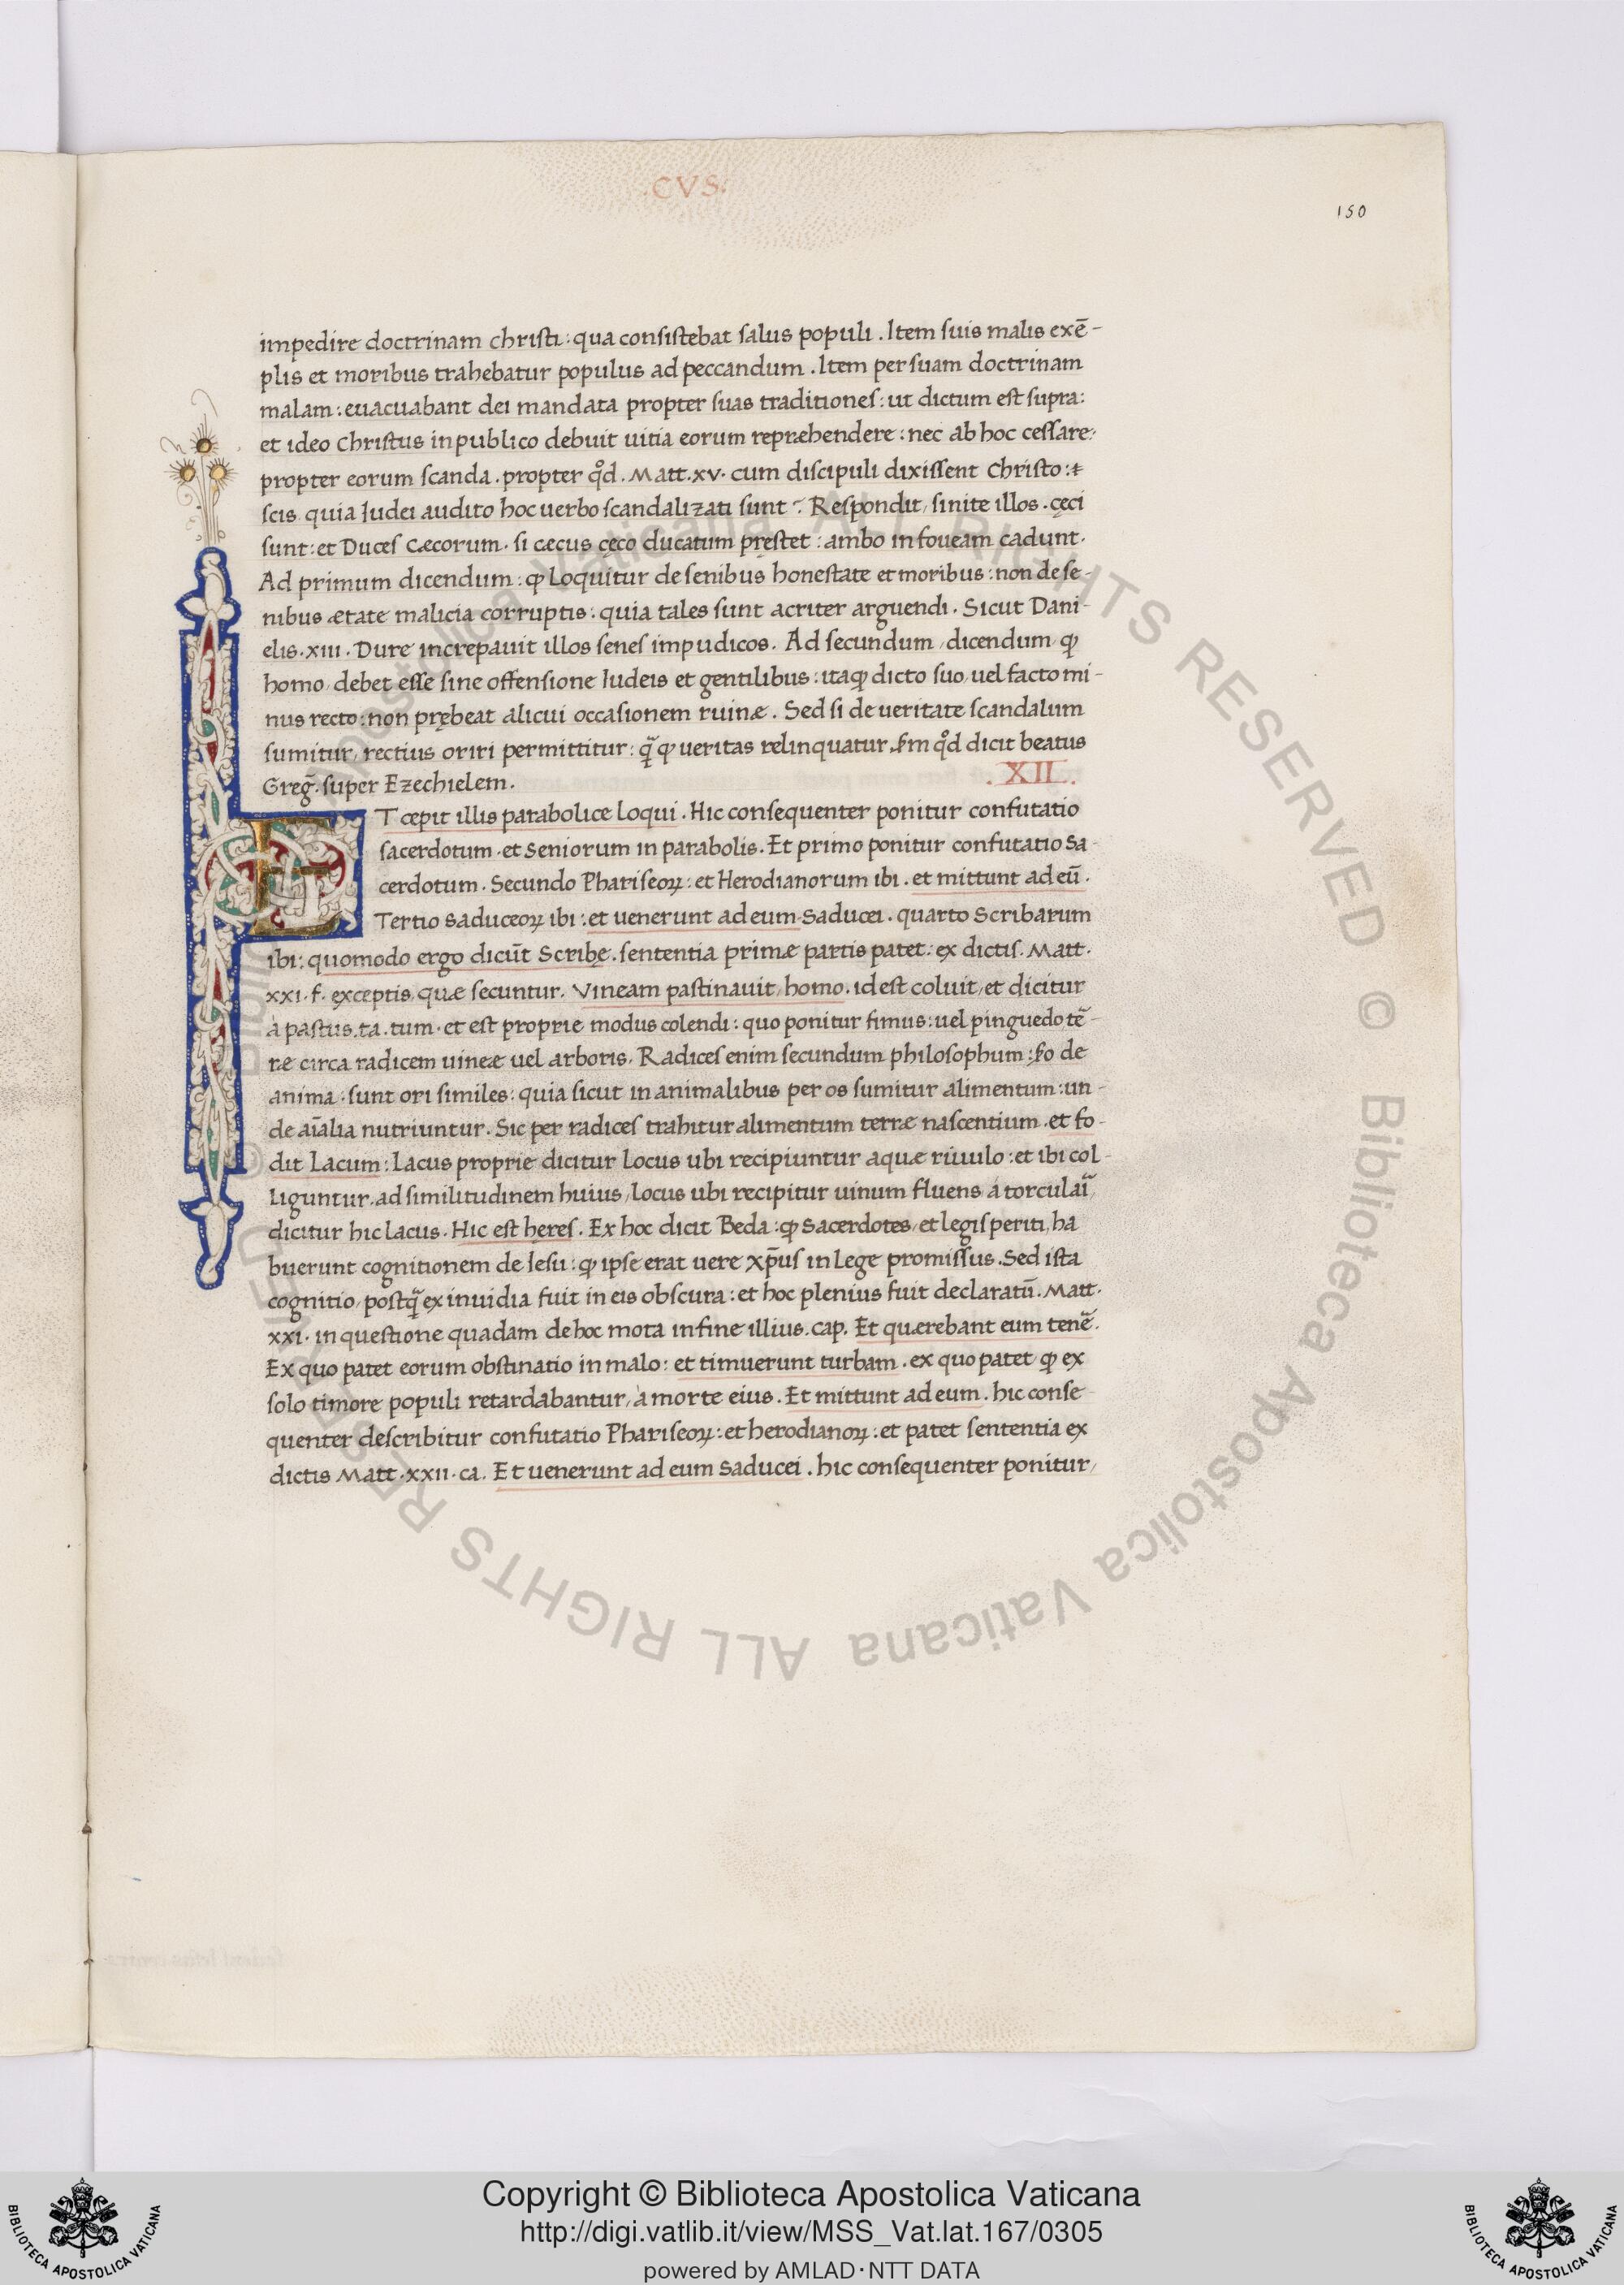 .CVS.
150
impedire doctrinam christi: qua consistebat salus populi. Item suis malis exē-
plis et moribus trahebatur populus ad peccandum. Item per suam doctrinam
malam: euacuabant dei mandata propter suas traditiones: ut dictum est supra:
et ideo Christus in publico debuit uitia eorum repræhendere: nec ab hoc cessare:
propter eorum scanda. propter qd̊. Matt. xv. cum discipuli dixissent Christo:
scis quia Iudei audito hoc uerbo scandalizati sunt? Respondit, sinite illos. cęci
sunt: et Duces cæcorum. si cæcus cęco ducatum pręstet: ambo in foueam cadunt.
Ad primum dicendum: ꝙ Loquitur de senibus honestate et moribus: non de se-
nibus ætate malicia corruptis: quia tales sunt acriter arguendi. Sicut Dani-
elis. xiii. Dure increpauit illos senes impudicos. Ad secundum, dicendum, ꝙ
homo, debet esse sine offensione Iudeis et gentilibus: itaꝙ dicto suo, uel facto mi-
nus recto: non prębeat alicui occasionem ruinæ. Sed si de ueritate scandalum
sumitur, rectius oriri permittitur: q̄ ꝙ ueritas relinquatur, s̄m qd̊ dicit beatus
Greg̃. super Ezechielem.
.XII.
ET cepit illis parabolice Loqui. Hic consequenter ponitur confutatio
sacerdotum. et Seniorum in parabolis. Et primo ponitur confutatio Sa-
cerdotum. Secundo Phariseoꝝ: et Herodianorum ibi. et mittunt ad eū.
Tertio Saduceoꝝ ibi: et uenerunt ad eum Saducei. quarto Scribarum
ibi: quomodo ergo dicūt Scribę. sententia primæ partis patet: ex dictis. Matt.
xxi. f. exceptis, quæ secuntur. Vineam pastinauit, homo. id est coluit, et dicitur
à pastus. ta. tum. et est proprie modus colendi: quo ponitur fimus: uel pinguedo tē-
ræ circa radicem uineæ uel arboris. Radices enim secundum philosophum: de
anima: sunt ori similes: quia sicut in animalibus per os sumitur alimentum: un-
de aīalia nutriuntur. Sic per radices trahitur alimentum terræ nascentium. et fo-
dit Lacum: Lacus proprie dicitur Locus ubi recipiuntur aquæ riuulo: et ibi col-
liguntur. ad similitudinem huius, locus ubi recipitur uinum fluens à torculaī,
dicitur hic lacus. Hic est hęres. Ex hoc dicit Beda: ꝙ Sacerdotes, et legisperiti, ha
buerunt cognitionem de Iesu: ꝙ ipse erat uere xp̄us in Lege promissus. Sed ista
cognitio, postq̄ ex inuidia fuit in eis obscura: et hoc plenius fuit declaratū. Matt.
xxi. in questione quadam de hoc mota in fine illius. cap. Et quærebant eum tenē.
Ex quo patet eorum obstinatio in malo: et timuerunt turbam. ex quo patet ꝙ ex
solo timore populi retardabantur, à morte eius. Et mittunt ad eum. hic conse-
quenter describitur confutatio Phariseoꝝ: et herodianoꝝ: et patet sententia ex
dictis Matt. xxii. ca. Et uenerunt ad eum Saducei. hic consequenter ponitur,
© Biblioteca Apostolica Vaticana ALL RIGHTS RESERVED © Biblioteca Apostolica Vaticana ALL RIGHTS RESERVED
Copyright © Biblioteca Apostolica Vaticana
http://digi.vatlib.it/view/MSS_Vat.lat.167/0305
powered by AMLAD·NTT DATA
BIBLIOTECA APOSTOLICA VATICANA
BIBLIOTECA APOSTOLICA VATICANA